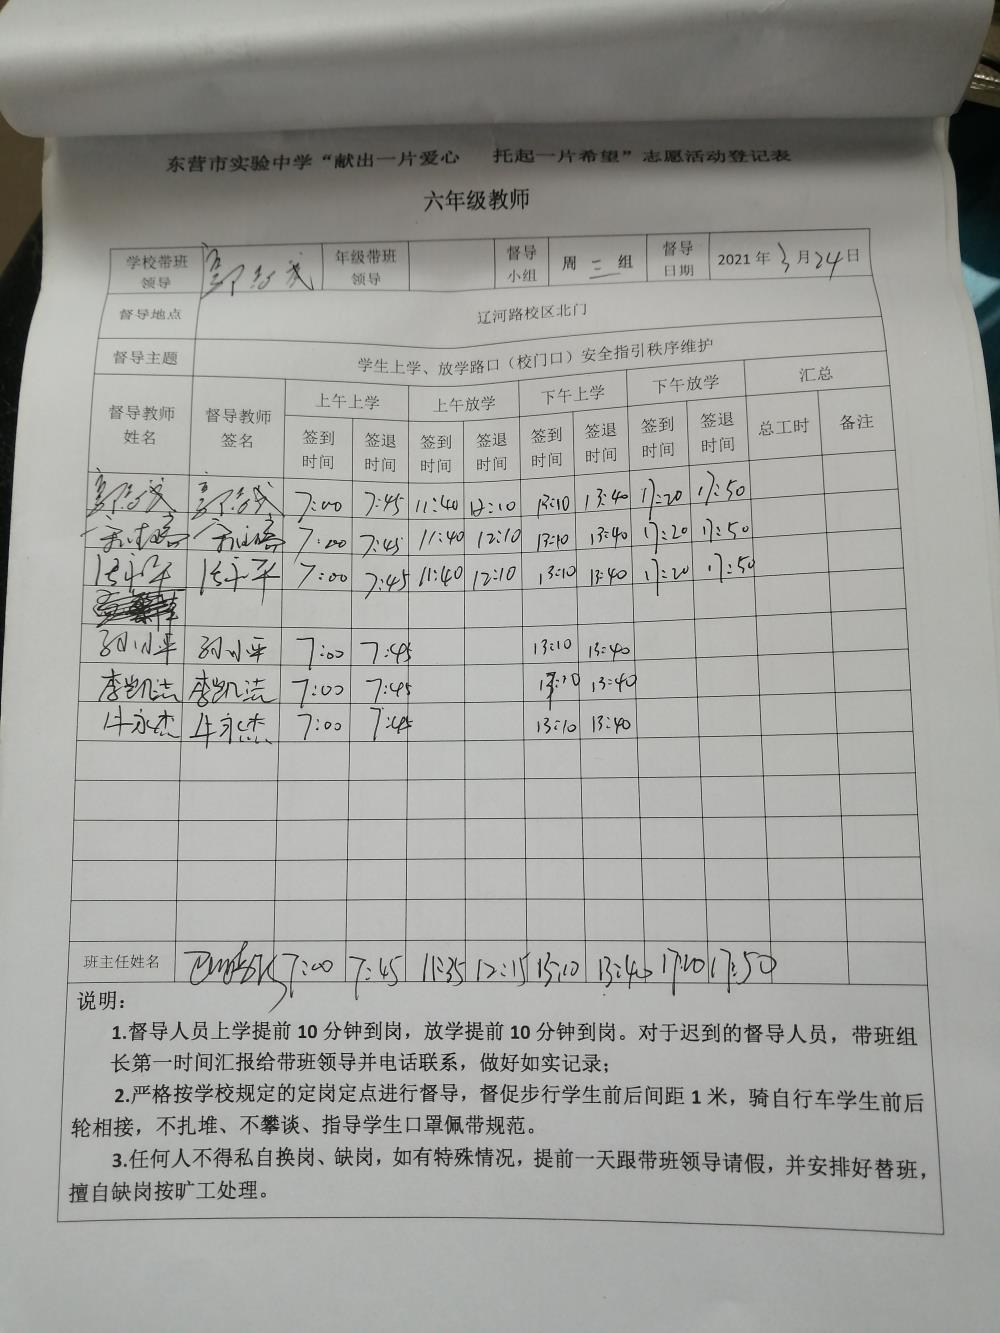 东营市实验中学“献出一片爱心 托起一片希望”志愿活动登记表
六年级教师
学校带班领导 年级带班领导 督导小组 周三组 督导日期 2021年3月24日
督导地点 辽河路校区北门
督导主题 学生上学、放学路口（校门口）安全指引秩序维护
督导教师姓名 督导教师签名 上午上学 上午放学 下午上学 下午放学 汇总
签到时间 签退时间 签到时间 签退时间 签到时间 签退时间 签到时间 签退时间 总工时 备注
7:00 7:45 11:40 12:10 13:10 13:40 17:20 17:50
7:00 7:45 11:40 12:10 13:10 13:40 17:20 17:50
7:00 7:45 11:40 12:10 13:10 13:40 17:20 17:50
孙小平 孙小平 7:00 7:45 13:10 13:40
李凯洁 李凯洁 7:00 7:45 13:10 13:40
牛永杰 牛永杰 7:00 7:45 13:10 13:40
班主任姓名 7:00 7:45 11:35 12:15 13:10 13:40 17:20 17:50
说明：
1.督导人员上学提前10分钟到岗，放学提前10分钟到岗。对于迟到的督导人员，带班组
长第一时间汇报给带班领导并电话联系，做好如实记录；
2.严格按学校规定的定岗定点进行督导，督促步行学生前后间距1米，骑自行车学生前后
轮相接，不扎堆、不攀谈、指导学生口罩佩带规范。
3.任何人不得私自换岗、缺岗，如有特殊情况，提前一天跟带班领导请假，并安排好替班，
擅自缺岗按旷工处理。